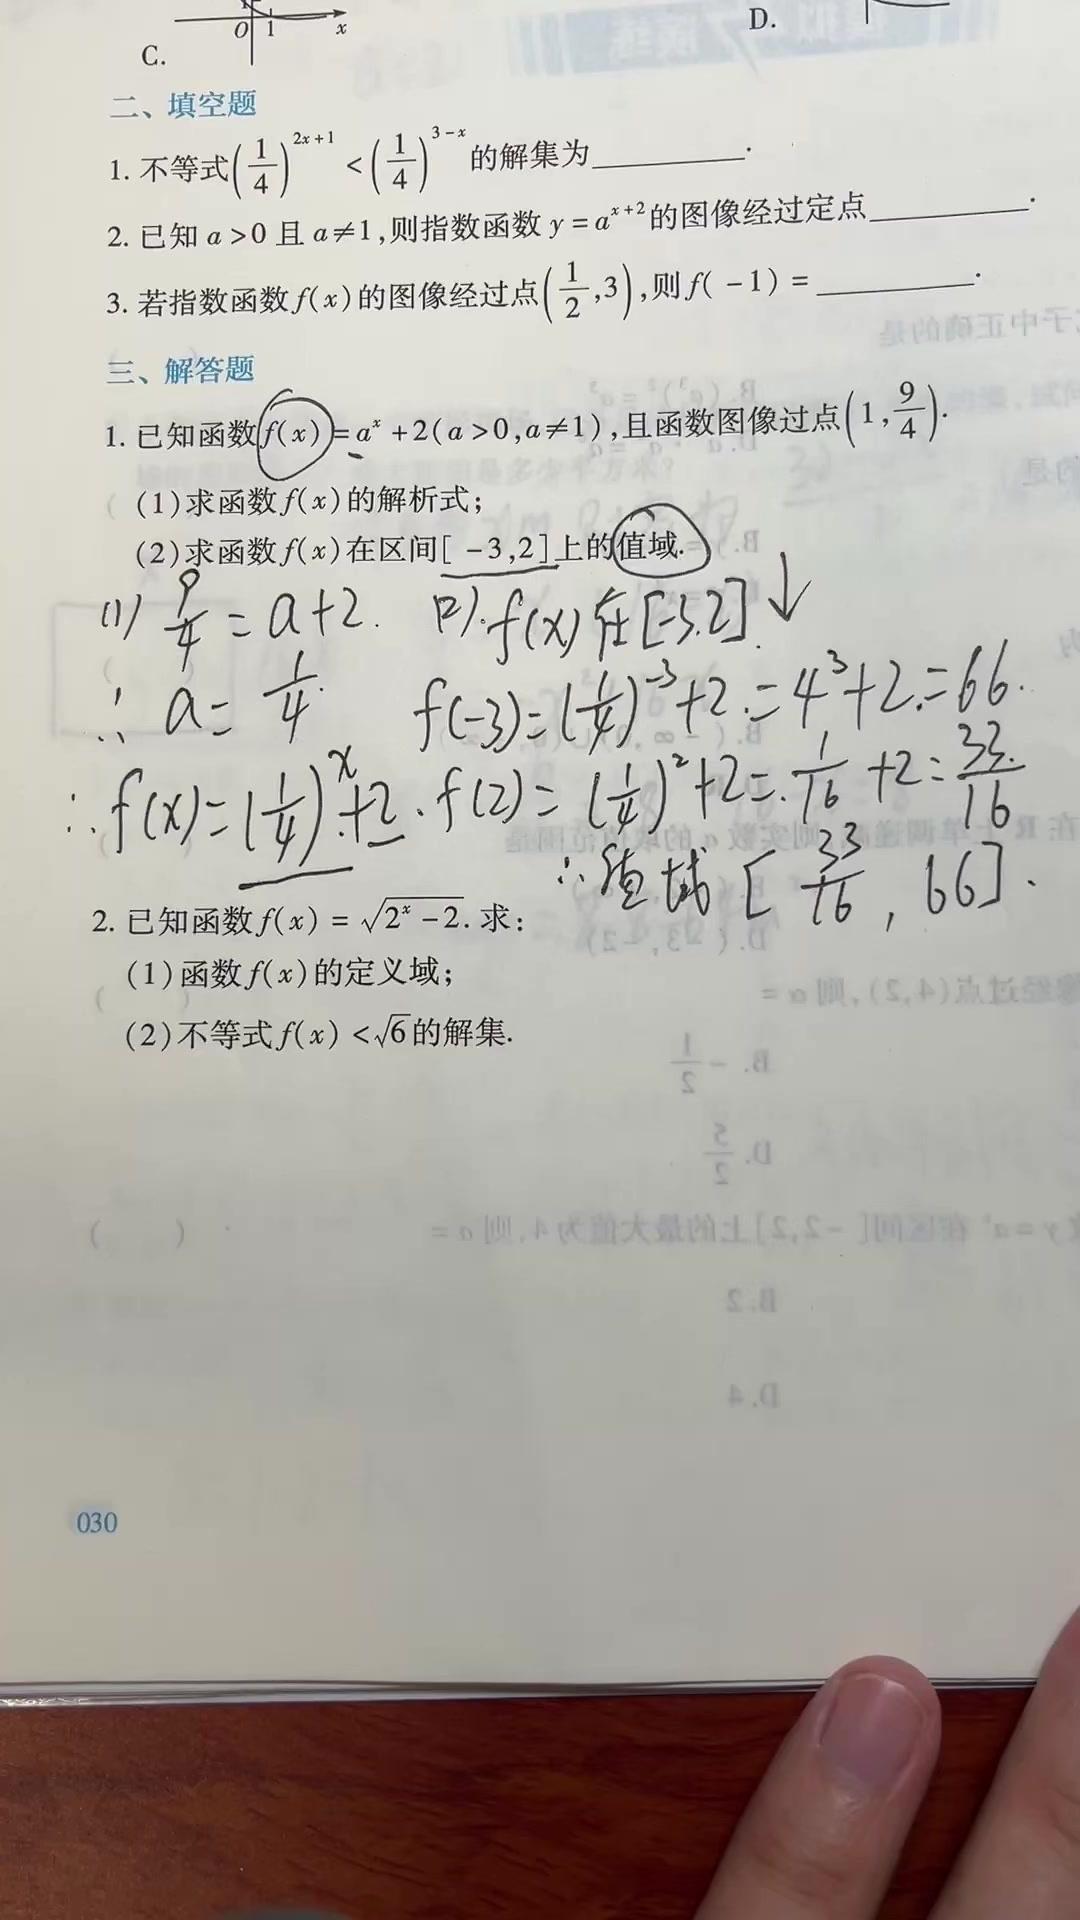 O 1 x
C.
D.
二、填空题
1. 不等式(1/4)^{2x+1} < (1/4)^{3-x} 的解集为________.
2. 已知 a>0 且 a≠1,则指数函数 y=a^{x+2} 的图像经过定点________.
3. 若指数函数 f(x) 的图像经过点(1/2,3),则 f(-1)=________.
三、解答题
1. 已知函数 f(x)=a^x+2(a>0,a≠1),且函数图像过点(1,9/4).
(1)求函数 f(x) 的解析式;
(2)求函数 f(x) 在区间[-3,2]上的值域.
(1) 9/4 = a+2. (2). f(x) 在 [-3.2] ↓
∴ a = 1/4. f(-3)=(1/4)^{-3}+2.=4^3+2.=66.
∴ f(x)=(1/4)^x+2. f(2)=(1/4)^2+2=1/16+2=33/16
∴值域 [33/16, 66].
2. 已知函数 f(x)=√(2^x-2). 求:
(1)函数 f(x) 的定义域;
(2)不等式 f(x)<√6 的解集.
030